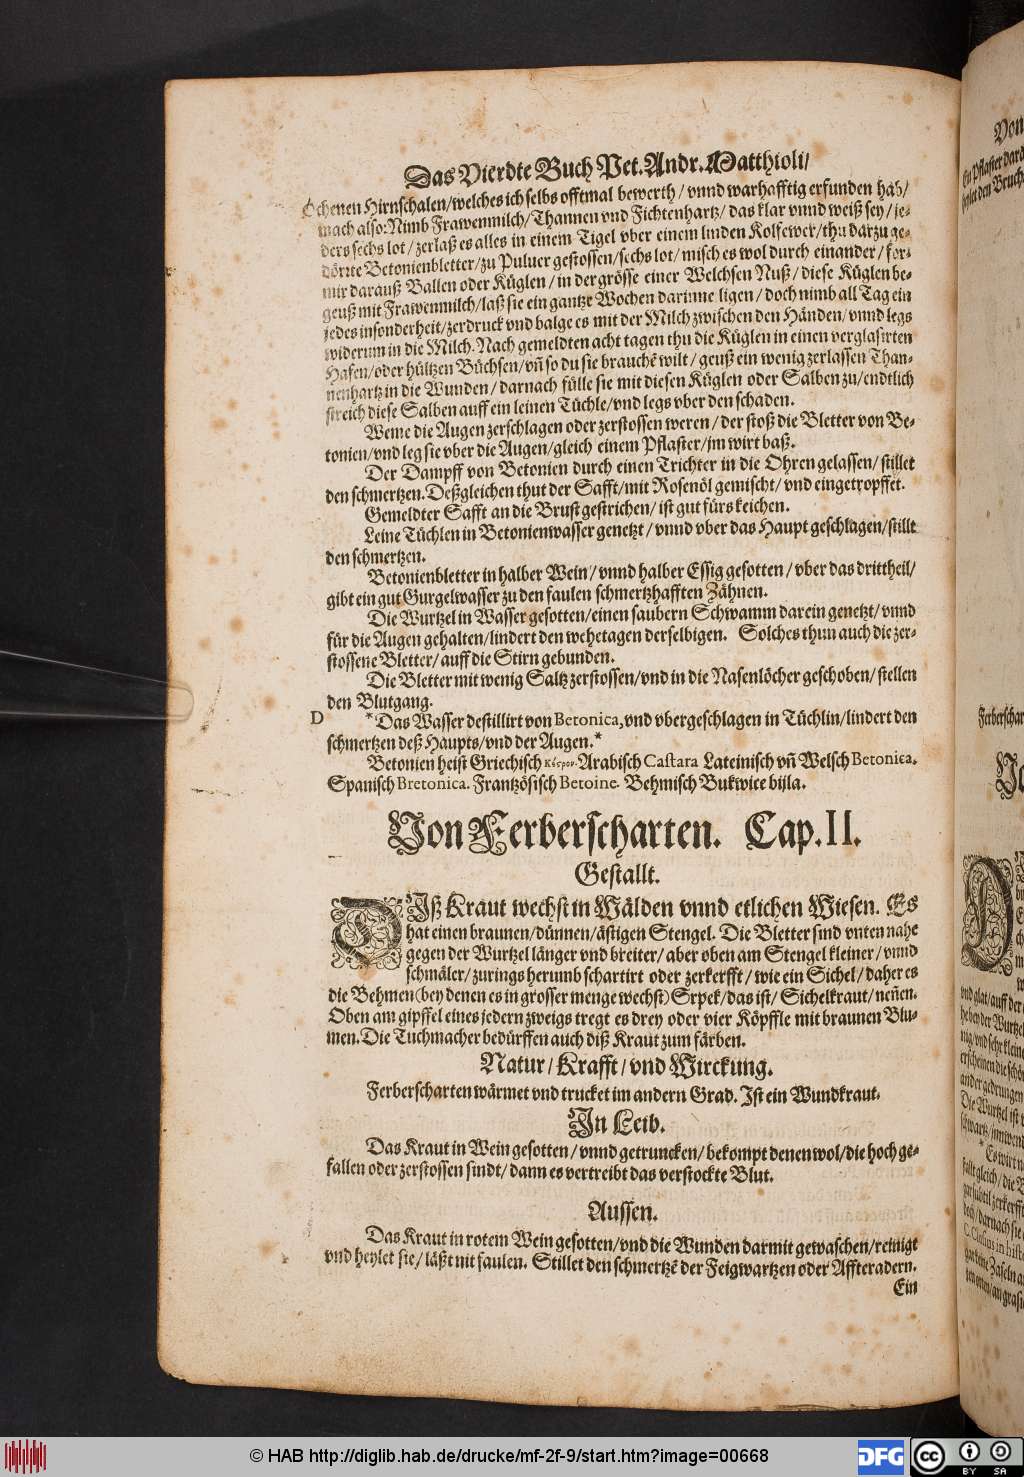 Das Vierdte Buch Pet. Andr. Matthioli/
ochenen Hirnschalen/welches ich selbs offtmal bewerth/ vnnd warhafftig erfunden hab/
mach also: Nimb Frawenmilch/Thannen vnd Fichtenhartz/ das klar vnnd weiß sey/ je-
ders sechs lot/ zerlaß es alles in einem Tigel vber einem linden Kolfewer/thu darzu ge-
dörrte Betonienbletter/zu Puluer gestossen/sechs lot/ misch es wol durch einander/ for-
mir darauß Ballen oder Küglen/ in der grösse einer Welchsen Nuß/ diese Küglen be-
geuß mit Frawenmilch/laß sie ein gantze Wochen darinne ligen/ doch nimb all Tag ein
jedes insonderheit/zerdruck vnd balge es mit der Milch zwischen den Händen/ vnnd legs
widerum in die Milch. Nach gemeldten acht tagen thu die Küglen in einen verglasirten
Hafen/oder hültzen Büchsen/vñ so du sie brauchē wilt/ geuß ein wenig zerlassen Than-
nenhartz in die Wunden/ darnach fülle sie mit diesen Küglen oder Salben zu/endtlich
streich diese Salben auff ein leinen Tüchle/vnd legs vber den schaden.
Wenne die Augen zerschlagen oder zerstossen weren/ der stoß die Bletter von Be-
tonien/vnd leg sie vber die Augen/gleich einem Pflaster/jm wirt baß.
Der Dampff von Betonien durch einen Trichter in die Ohren gelassen/ stillet
den schmertzen. Deßgleichen thut der Safft/mit Rosenöl gemischt/ vnd eingetropffet.
Gemeldter Safft an die Brust gestrichen/ ist gut fürs keichen.
Leine Tüchlen in Betonienwasser genetzt/ vnnd vber das Haupt geschlagen/stillt
den schmertzen.
Betonienbletter in halber Wein/ vnnd halber Essig gesotten/ vber das drittheil/
gibt ein gut Gurgelwasser zu den faulen schmertzhafften Zähnen.
Die Wurtzel in Wasser gesotten/einen saubern Schwamm darein genetzt/ vnnd
für die Augen gehalten/lindert den wehetagen derselbigen. Solches thun auch die zer-
stossene Bletter/ auff die Stirn gebunden.
Die Bletter mit wenig Saltz zerstossen/vnd in die Nasenlöcher geschoben/ stellen
den Blutgang.
D *Das Wasser destillirt von Betonica, vnd vbergeschlagen in Tüchlin/lindert den
schmertzen deß Haupts/vnd der Augen.*
Betonien heist Griechisch Κέστρον. Arabisch Castara Lateinisch vñ Welsch Betonica.
Spanisch Bretonica. Frantzösisch Betoine. Behmisch Bukwice bijla.
Von Ferberscharten. Cap. II.
Gestallt.
Diß Kraut wechst in Wälden vnnd etlichen Wiesen. Es
hat einen braunen/dünnen/ästigen Stengel. Die Bletter sind vnten nahe
gegen der Wurtzel länger vnd breiter/ aber oben am Stengel kleiner/ vnnd
schmäler/zurings herumb schartirt oder zerkerfft/ wie ein Sichel/ daher es
die Behmen (bey denen es in grosser menge wechst) Srpek/das ist/ Sichelkraut/ neñen.
Oben am gipffel eines jedern zweigs tregt es drey oder vier Köpffle mit braunen Blu-
men. Die Tuchmacher bedürffen auch diß Kraut zum färben.
Natur/ Krafft/ vnd Wirckung.
Ferberscharten wärmet vnd trucket im andern Grad. Ist ein Wundkraut.
In Leib.
Das Kraut in Wein gesotten/ vnnd getruncken/ bekompt denen wol/die hoch ge-
fallen oder zerstossen sindt/ dann es vertreibt das verstockte Blut.
Aussen.
Das Kraut in rotem Wein gesotten/vnd die Wunden darmit gewaschen/reinigt
vnd heylet sie/ läßt nit faulen. Stillet den schmertzē der Feigwartzen oder Affteradern.
Ein
© HAB http://diglib.hab.de/drucke/mf-2f-9/start.htm?image=00668
DFG
cc
BY SA